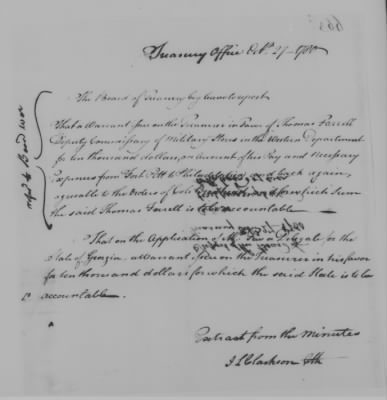 Treasury Office Octr. 27 - 1780
The Board of Treasury beg leave to report
That a Warrant issue on the Treasurer in favor of Thomas Farrell
Deputy Commissary of Military Stores in the Western Department
for ten thousand dollars, on Account of his Pay and necessary
Expences from Fort Pitt to Philadelphia and back again,
agreeable to the Orders of Colo for which Sum
the said Thomas Farrell is to be accountable
That on the Application of Mr. a Delegate for the
State of Georgia a Warrant issue on the Treasurer in his favor
for ten thousand dollars for which the said State is to be
accountable
Extract from the Minutes
Clarkson